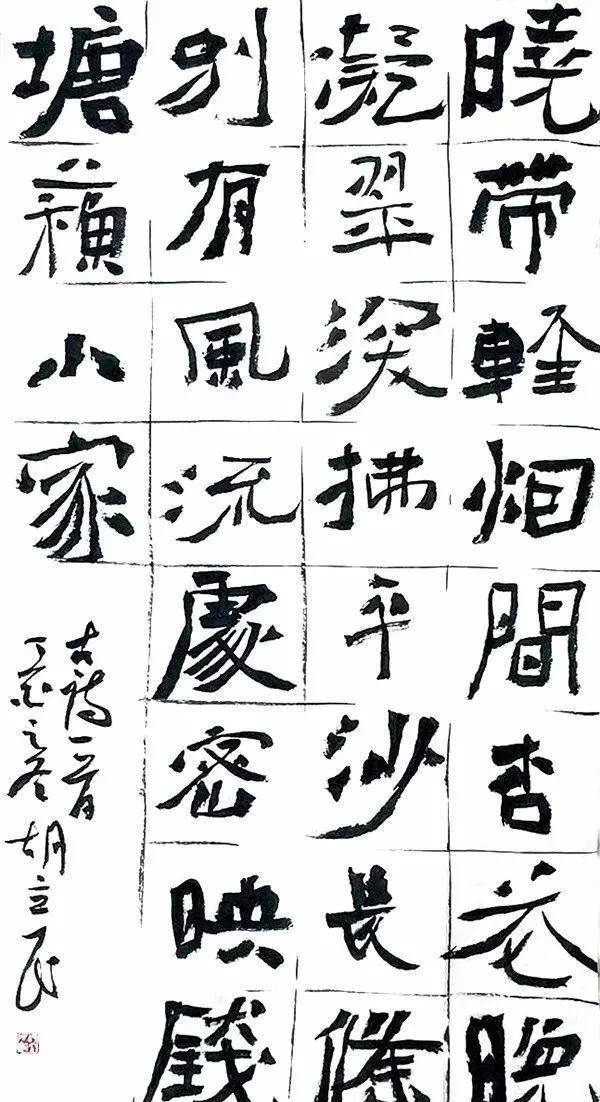 曉帶輕烟間杏花晚
凝翠深拂平沙長條
别有風流處密映錢
塘蘓小家
古詩一首
丁酉之冬胡立民